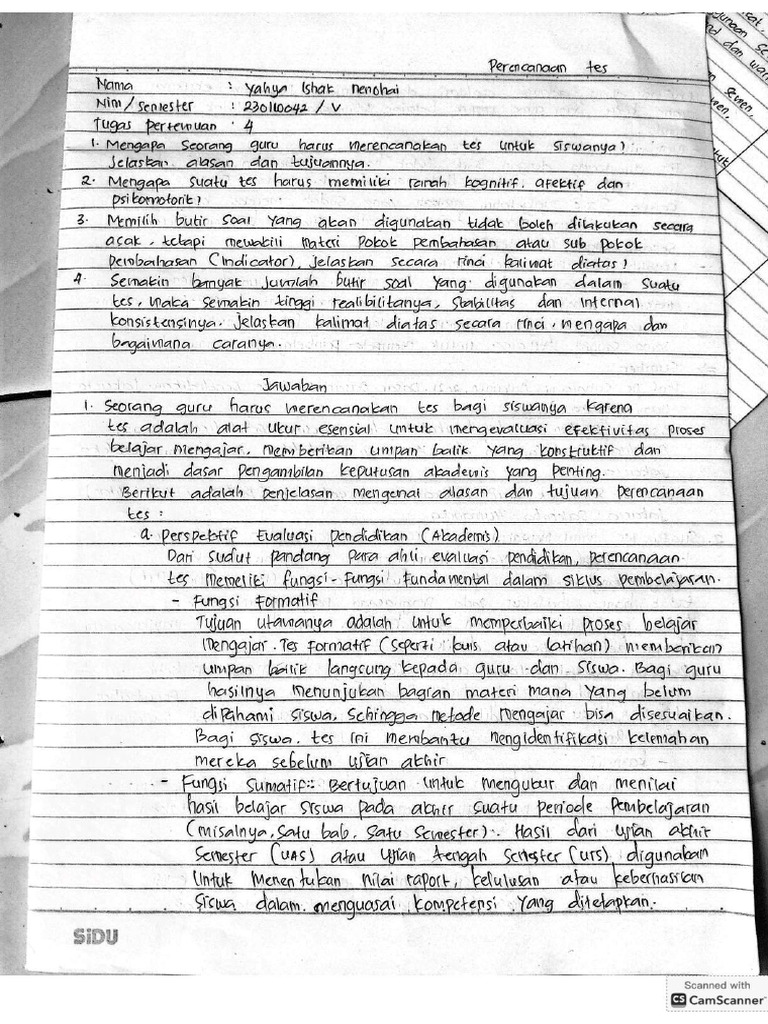 Perencanaan tes
Nama : Yahya Ishak Nenohai
Nim/semester : 230110042 / V
Tugas pertemuan : 4
1. Mengapa seorang guru harus merencanakan tes untuk siswanya?
Jelaskan alasan dan tujuannya.
2. Mengapa suatu tes harus memiliki ranah kognitif, afektif dan
psikomotorik?
3. Memilih butir soal yang akan digunakan tidak boleh dilakukan secara
acak, tetapi mewakili materi pokok pembahasan atau sub pokok
pembahasan (Indicator), jelaskan secara rinci kalimat diatas?
4. Semakin banyak jumlah butir soal yang digunakan dalam suatu
tes, maka semakin tinggi realibilitanya, stabilitas dan internal
konsistensinya. jelaskan kalimat diatas secara rinci, mengapa dan
bagaimana caranya.
Jawaban
1. Seorang guru harus merencanakan tes bagi siswanya karena
tes adalah alat ukur esensial untuk mengevaluasi efektivitas proses
belajar mengajar, memberikan umpan balik yang konstruktif dan
menjadi dasar pengambilan keputusan akademis yang penting.
Berikut adalah penjelasan mengenai alasan dan tujuan perencanaan
tes :
a. Perspektif Evaluasi Pendidikan (Akademis)
Dari sudut pandang para ahli evaluasi pendidikan, perencanaan
tes memeliki fungsi-fungsi fundamental dalam siklus pembelajaran.
- Fungsi Formatif
Tujuan utamanya adalah untuk memperbaiki proses belajar
mengajar. Tes formatif (seperti kuis atau latihan) memberikan
umpan balik langsung kepada guru dan siswa. Bagi guru
hasilnya menunjukan bagian materi mana yang belum
dipahami siswa, sehingga metode mengajar bisa disesuaikan.
Bagi siswa, tes ini membantu mengidentifikasi kelemahan
mereka sebelum ujian akhir
- Fungsi Sumatif : Bertujuan untuk mengukur dan menilai
hasil belajar siswa pada akhir suatu periode pembelajaran
(misalnya, satu bab, satu semester). Hasil dari ujian akhir
semester (UAS) atau Ujian tengah semester (UTS) digunakan
untuk menentukan nilai raport, kelulusan atau keberhasilan
siswa dalam menguasai kompetensi yang ditetapkan.
SiDU
Scanned with
CS CamScanner